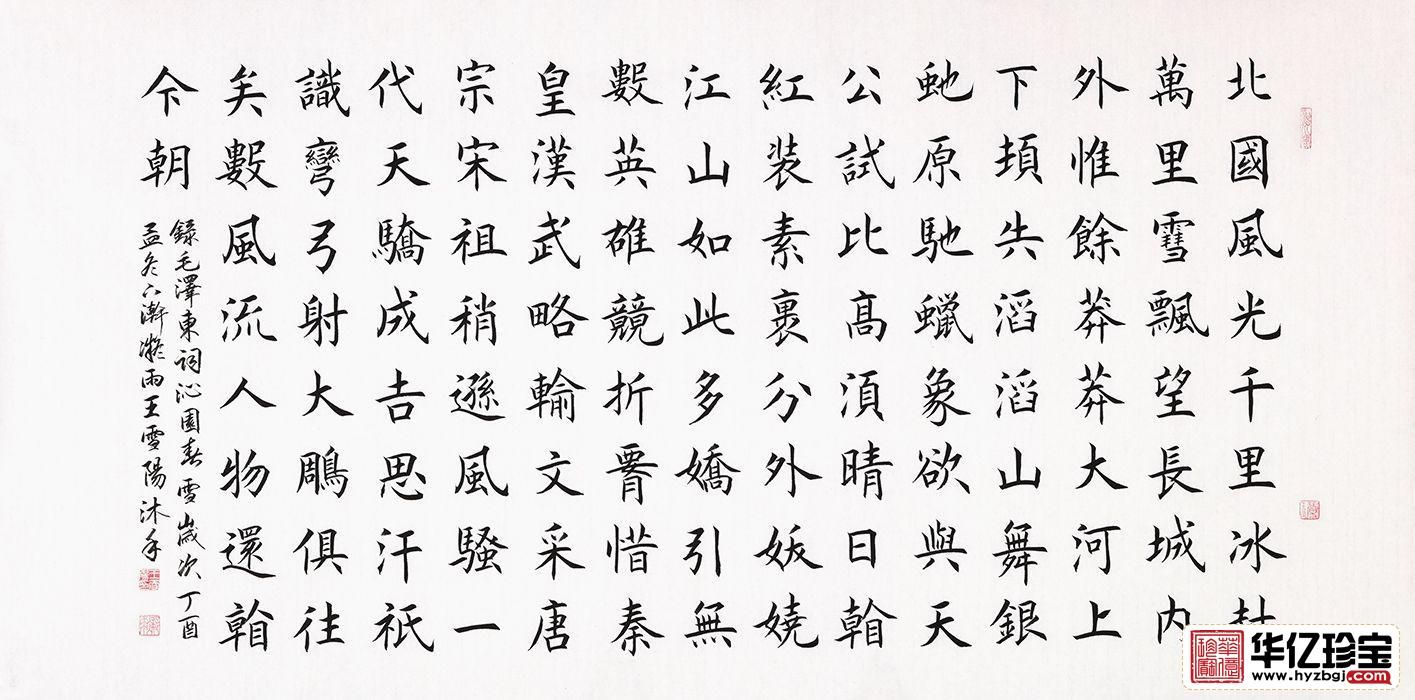 北國風光千里冰封
萬里雪飄望長城內
外惟餘莽莽大河上
下頓失滔滔山舞銀
虵原馳蠟象欲與天
公試比髙須晴日看
紅装素裹分外妖嬈
江山如此多嬌引無
數英雄競折腰惜秦
皇漢武略輸文采唐
宗宋祖稍遜風騷一
代天驕成吉思汗祇
識彎弓射大鵰俱往
矣數風流人物還看
今朝
錄毛澤東詞沁園春雪歲次丁酉
孟冬六漸凝雨王雪陽沐手
华亿珍宝
www.hyzbgj.com